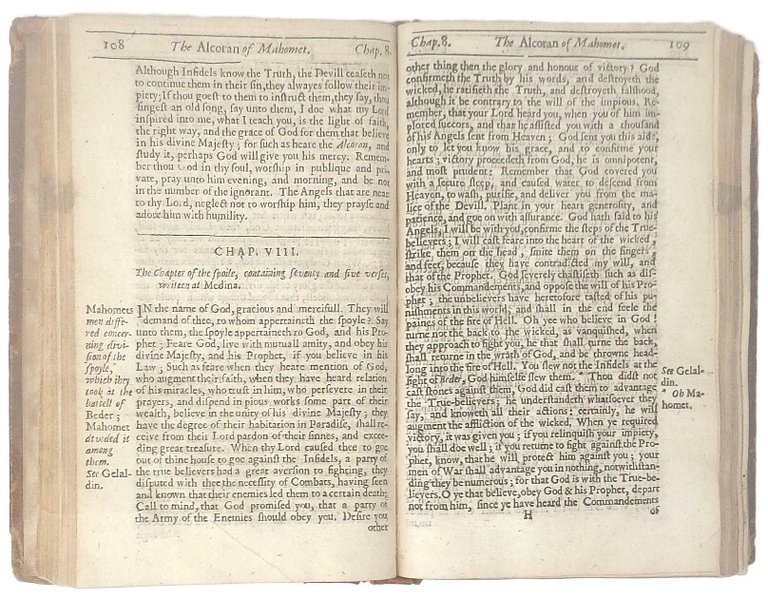 108 The Alcoran of Mahomet. Chap. 8.
Although Infidels know the Truth, the Devill ceaseth not
to continue them in their sin, they alwayes follow their im-
piety; If thou goest to them to instruct them, they say, thou
singest an old song, say unto them, I doe what my Lord
inspired into me; what I teach you, is the light of faith,
the right way, and the grace of God for them that believe
in his divine Majesty; for such as heare the Alcoran, and
study it, perhaps God will give you his mercy. Remem-
ber thou God in thy soul, worship in publique and pri-
vate, pray unto him evening, and morning, and be not
in the number of the ignorant. The Angels that are near
to thy Lord, neglect not to worship him, they prayse and
adore him with humility.
CHAP. VIII.
The Chapter of the spoile, containing seventy and five verses,
written at Medina.
IN the name of God, gracious and mercifull. They will
demand of thee, to whom appertaineth the spoyle? Say
unto them, the spoyle appertaineth to God, and his Pro-
phet; Feare God, live with mutuall amity, and obey his
divine Majesty, and his Prophet, if you believe in his
Law; Such as feare when they heare mention of God,
who augment their faith, when they have heard relation
of his miracles, who trust in him, who persevere in their
prayers, and dispend in pious works some part of their
wealth, believe in the unity of his divine Majesty; they
have the degree of their habitation in Paradise, shall re-
ceive from their Lord pardon of their sinnes, and excee-
ding great treasure. When thy Lord caused thee to goe
out of thine house to goe against the Infidels, a party of
the true believers had a great aversion to fighting, they
disputed with thee the necessity of Combats, having seen
and known that their enemies led them to a certain death;
Call to mind, that God promised you, that a party of
the Army of the Enemies should obey you. Desire you
other
Mahomets
men diffe-
red concer-
ning divi-
sion of the
spoyle,
which they
took at the
battell of
Beder;
Mahomet
divided it
among
them.
See Gelal-
din.
Chap. 8. The Alcoran of Mahomet. 109
other thing then the glory and honour of victory? God
confirmeth the Truth by his words, and destroyeth the
wicked, he ratifieth the Truth, and destroyeth falshood,
although it be contrary to the will of the impious. Re-
member, that your Lord heard you, when you of him im-
plored succors, and that he assisted you with a thousand
of his Angels sent from Heaven; God sent you this aide,
only to let you know his grace, and to confirme your
hearts; victory proceedeth from God, he is omnipotent,
and most prudent; Remember that God covered you
with a secure sleep, and caused water to descend from
Heaven, to wash, purifie, and deliver you from the ma-
lice of the Devill. Plant in your heart generosity, and
patience, and goe on with assurance. God hath said to his
Angels, I will be with you, confirme the steps of the True-
believers; I will cast feare into the heart of the wicked,
strike them on the head, smite them on the fingers,
and feet, because they have contradicted my will, and
that of the Prophet. God severely chastiseth such as dis-
obey his Commandements, and oppose the will of his Pro-
phet; the unbelievers have heretofore tasted of his pu-
nishments in this world, and shall in the end feele the
paines of the fire of Hell. Oh yee who believe in God!
turne not the back to the wicked, as vanquished, when
they approach to fight you, he that shall turne the back,
shall returne in the wrath of God, and be throwne head-
long into the fire of Hell. You slew not the Infidels at the
fight of Beder, God himselfe slew them. * Thou didst not
cast stones against them, God did cast them to advantage
the True-believers; he understandeth whatsoever they
say, and knoweth all their actions; certainly, he will
augment the affliction of the wicked. When ye required
victory, it was given you; if you relinquish your impiety,
you shall doe well; if you returne to fight against the Pro-
phet, know, that he will protect him against you; your
men of War shall advantage you in nothing, notwithstan-
ding they be numerous; for that God is with the True-be-
lievers. O ye that believe, obey God & his Prophet, depart
not from him, since ye have heard the Commandements
H of
See Gelal-
din.
* Oh Ma-
homet.